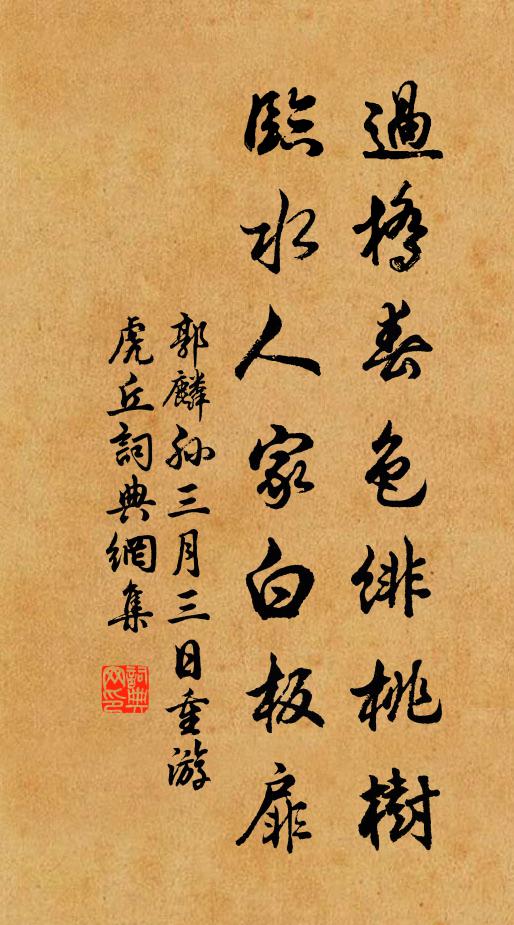 過橋春色緋桃樹
臨水人家白板扉
郭麟孙三月三日重游
虎丘詞典網集
詞典网印